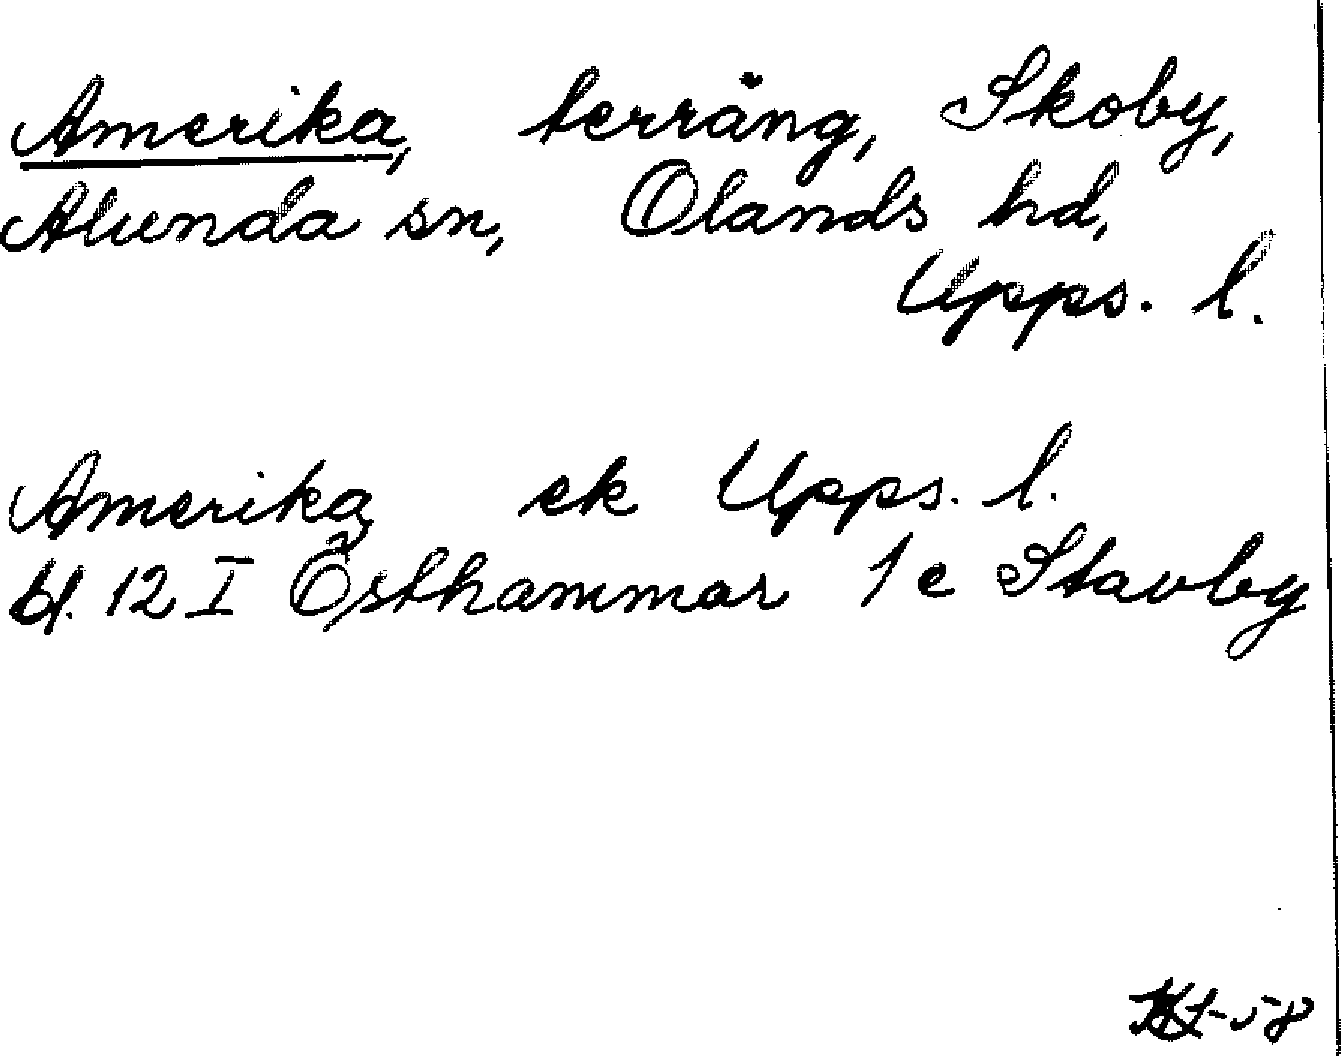 Amerika, terräng, Skoby,
Alunda sn, Olands hd,
Upps. l.
Amerika ek Upps. l.
bl. 12 I Östhammar 1 e Stavby
-58